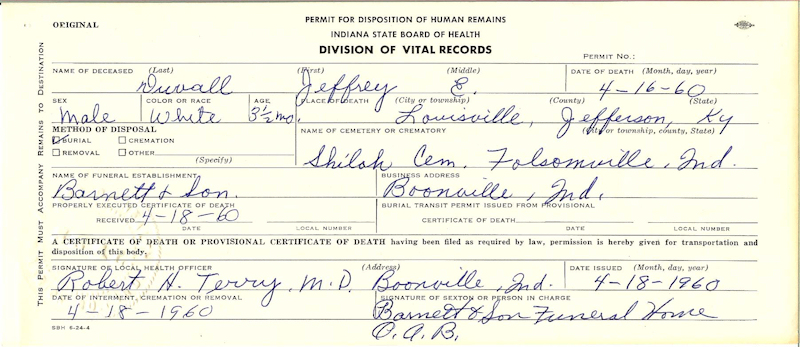 ORIGINAL
PERMIT FOR DISPOSITION OF HUMAN REMAINS
INDIANA STATE BOARD OF HEALTH
DIVISION OF VITAL RECORDS
PERMIT NO.:
THIS PERMIT MUST ACCOMPANY REMAINS TO DESTINATION
NAME OF DECEASED (Last) (First) (Middle) DATE OF DEATH (Month, day, year)
Duvall Jeffrey E. 4-16-60
SEX COLOR OR RACE AGE PLACE OF DEATH (City or township) (County) (State)
Male White 3½ mo. Louisville, Jefferson, Ky
METHOD OF DISPOSAL NAME OF CEMETERY OR CREMATORY (City or township, county, State)
BURIAL CREMATION
REMOVAL OTHER
(Specify)
Shiloh Cem. Folsomville, Ind.
NAME OF FUNERAL ESTABLISHMENT BUSINESS ADDRESS
Barnett & Son. Boonville, Ind.
PROPERLY EXECUTED CERTIFICATE OF DEATH BURIAL TRANSIT PERMIT ISSUED FROM PROVISIONAL
RECEIVED 4-18-60 CERTIFICATE OF DEATH
DATE LOCAL NUMBER DATE LOCAL NUMBER
A CERTIFICATE OF DEATH OR PROVISIONAL CERTIFICATE OF DEATH having been filed as required by law, permission is hereby given for transportation and
disposition of this body.
SIGNATURE OF LOCAL HEALTH OFFICER (Address) DATE ISSUED (Month, day, year)
Robert H. Terry, M.D. Boonville, Ind. 4-18-1960
DATE OF INTERMENT, CREMATION OR REMOVAL SIGNATURE OF SEXTON OR PERSON IN CHARGE
4-18-1960 Barnett & Son Funeral Home
O.A.B.
SBH 6-24-4